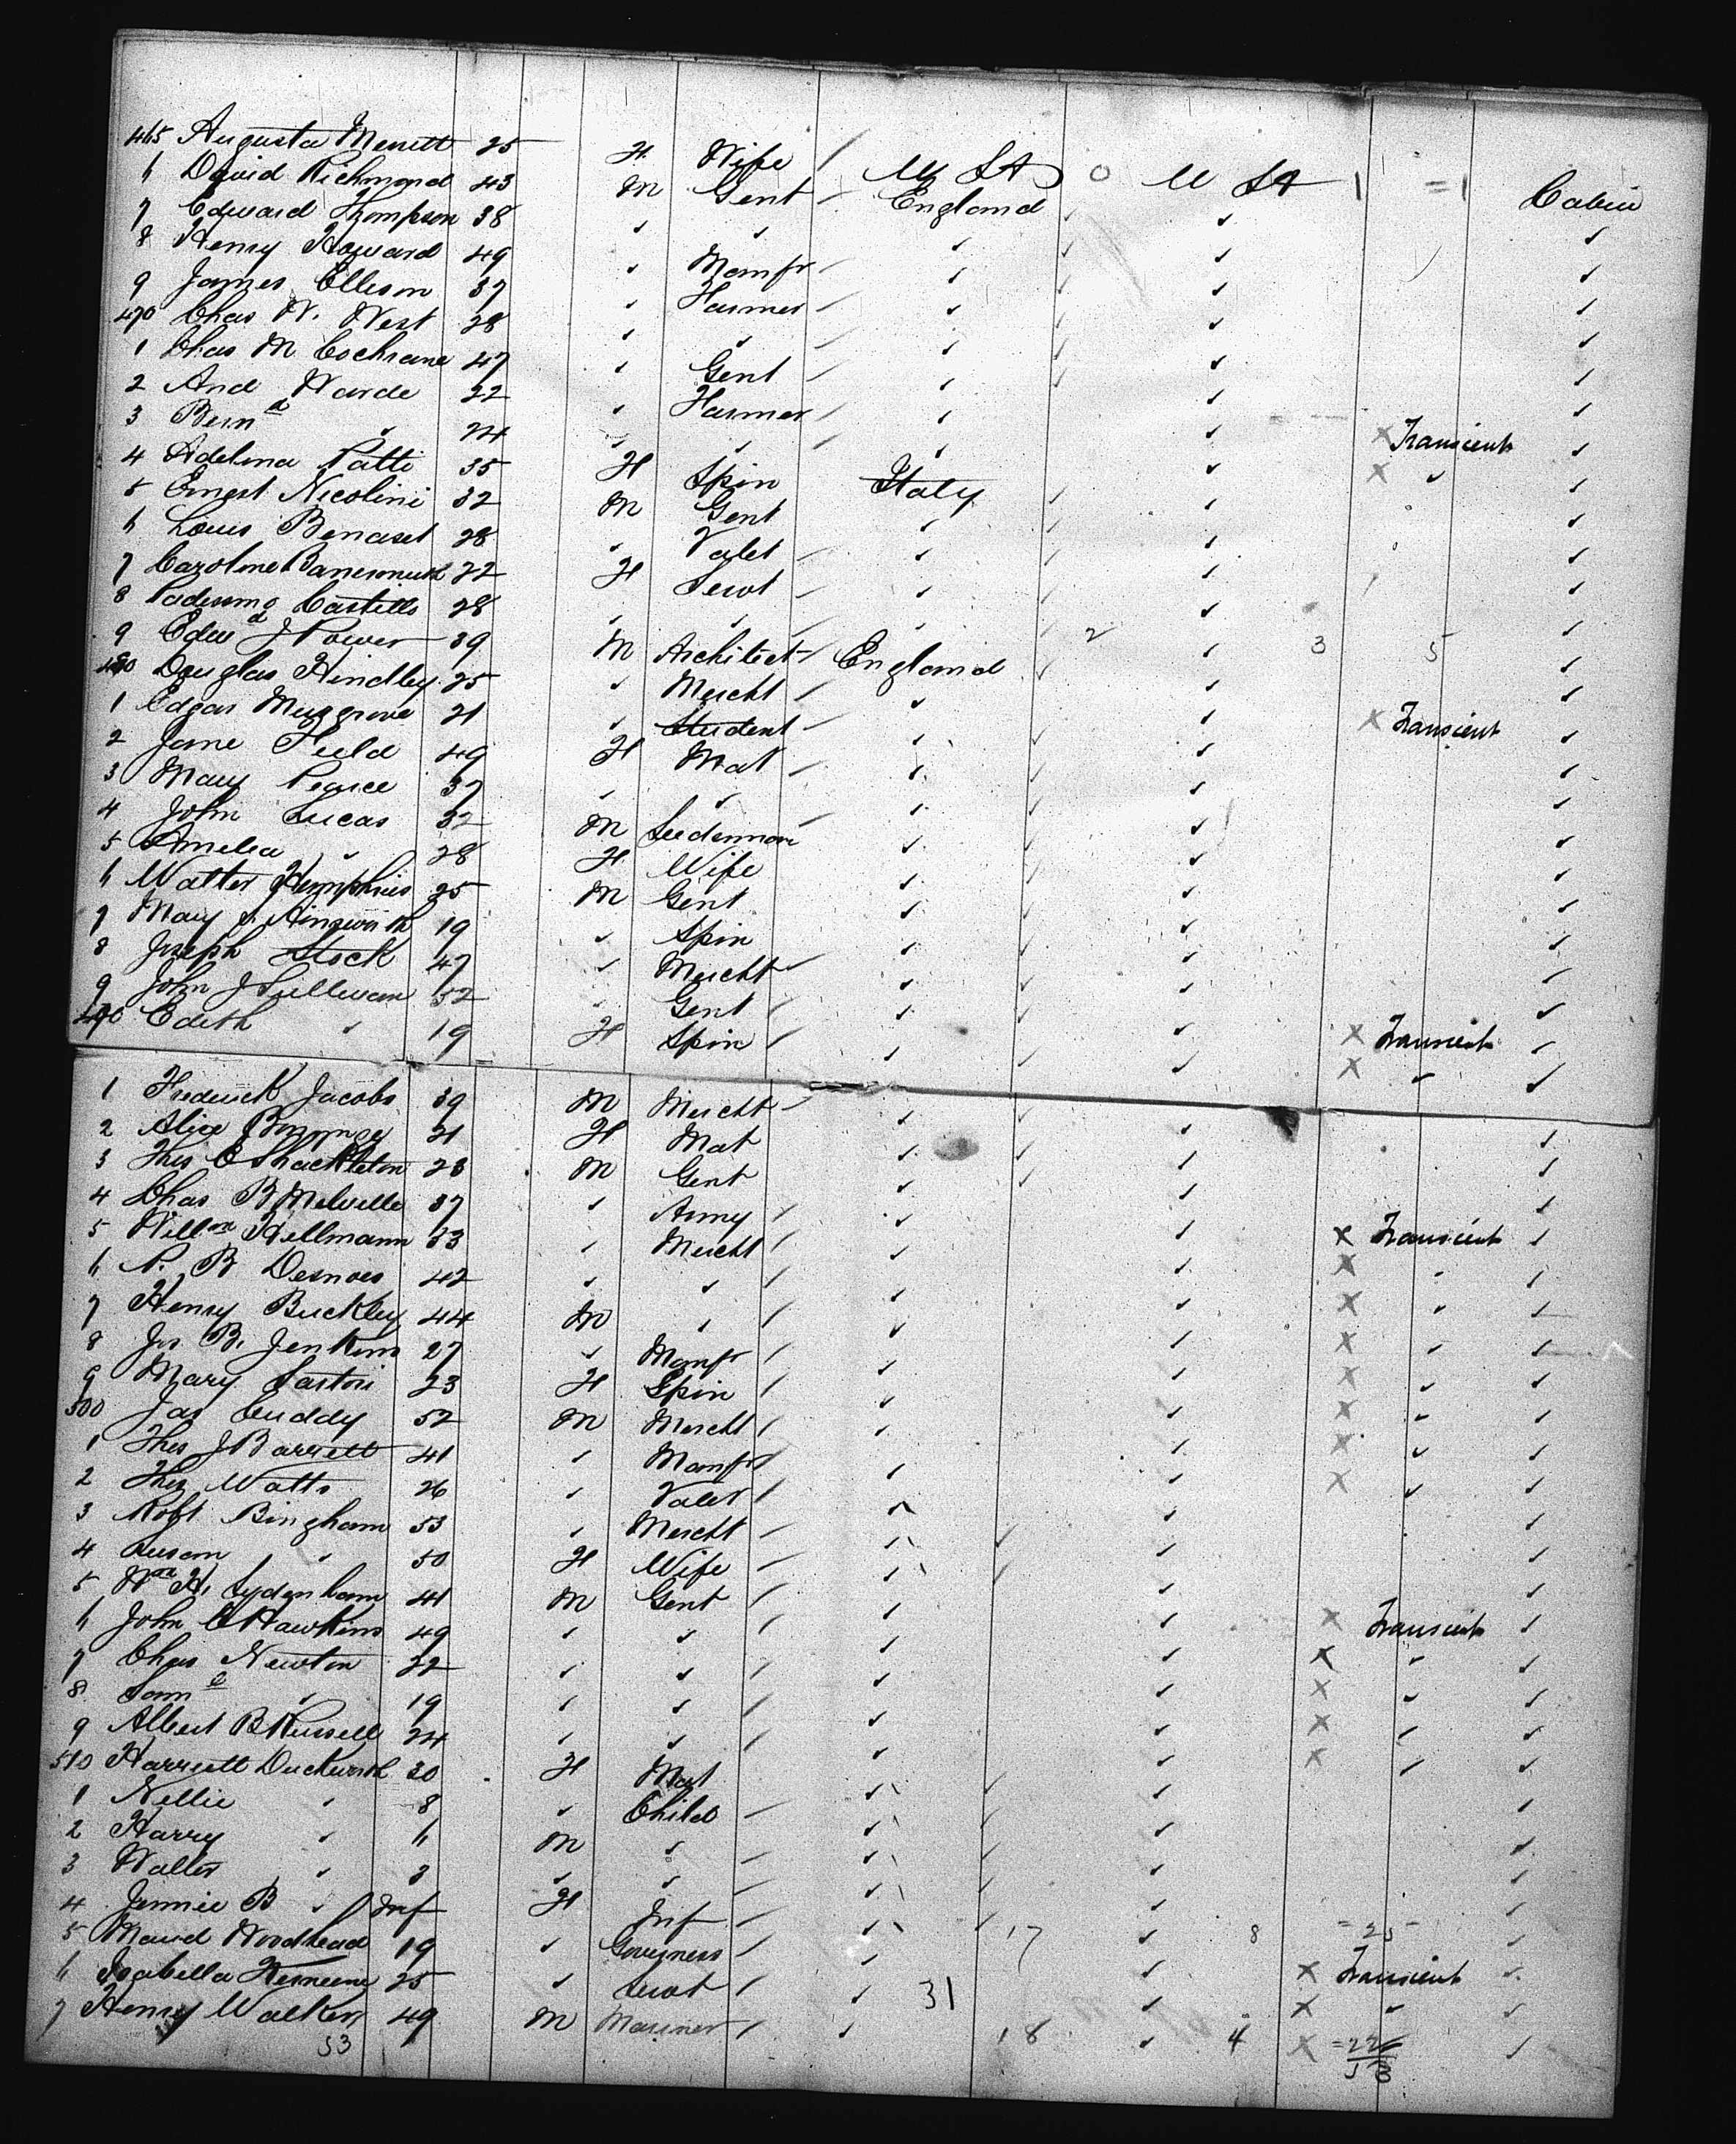 465 Augusta Merritt 25 F Wife / U St O U St 1 =1 Cabin
6 David Richmond 43 M Gent / England ✓ ✓ ✓
7 Edward Thompson 38 ✓ ✓ ✓ ✓ ✓ ✓
8 Henry Howard 49 ✓ Manfr / ✓ ✓ ✓ ✓
9 James Ellison 37 ✓ Farmer / ✓ ✓ ✓
470 Chas W. West 28 ✓ ✓ / ✓ ✓ ✓ ✓
1 Chas M Cochrane 47 ✓ Gent / ✓ ✓ ✓ ✓
2 And Warde 22 ✓ Farmer / ✓ ✓ ✓
3 Bernd ✓ 24 ✓ ✓ / ✓ ✓ x Transient ✓
4 Adelina Patti 35 F Spin Italy ✓ x ✓ ✓
5 Ernest Nicolini 32 M Gent ✓ ✓ ✓ ✓
6 Louis Benaset 28 ✓ Valet / ✓ ✓ ✓ ✓
7 Caroline 22 F Servt / ✓ ✓ ✓
8 Castills 28 ✓ ✓ / ✓ ✓ ✓
9 Edwd J Power 39 M Architect / England ✓ 2 ✓ 3 5 ✓
480 Douglas Hindley 25 ✓ Mercht / ✓ ✓ ✓
1 Edgar Musgrove 21 ✓ Student / ✓ ✓ x Transient ✓
2 Jane Field 49 F Mat / ✓ ✓ ✓ ✓
3 Mary Pearce 37 ✓ ✓ / ✓ ✓ ✓ ✓
4 John Lucas 32 M Seedsman ✓ ✓ ✓ ✓
5 Amelia ✓ 28 F Wife ✓ ✓ ✓ ✓
6 Walter Humphries 25 M Gent ✓ ✓ ✓ ✓
7 Mary Ainsworth 19 ✓ Spin ✓ ✓ ✓ ✓
8 Joseph Stock 47 ✓ Mercht / ✓ ✓ ✓ ✓
9 John J Sullivan 52 ✓ Gent / ✓ ✓ ✓ x Transient ✓
490 Edith ✓ 19 F Spin / ✓ ✓ ✓ x ✓ ✓
1 Frederick Jacobs 39 M Mercht / ✓ ✓ ✓ ✓
2 Alice 21 F Mat ✓ ✓ ✓ ✓
3 Thos C Shackleton 23 M Gent ✓ ✓ ✓ ✓
4 Chas B Melville 37 ✓ Army / ✓ ✓ x Transient ✓
5 Willm Hellmann 33 ✓ Mercht / ✓ ✓ x ✓ ✓
6 P. B Desnoes 42 ✓ ✓ / ✓ ✓ x ✓ ✓
7 Henry Buckley 44 M ✓ / ✓ ✓ x ✓ ✓
8 Js. B. Jenkins 27 ✓ Manfr / ✓ ✓ x ✓ ✓
9 Mary Sartori 23 F Spin / ✓ ✓ x ✓ ✓
500 Jas Cuddy 52 M Mercht / ✓ ✓ x ✓ ✓
1 Thos J Barrett 41 ✓ Manfr / ✓ ✓ x ✓ ✓
2 Thos Watts 26 ✓ Valet / ✓ ✓ ✓
3 Robt Bingham 53 ✓ Mercht / ✓ ✓ ✓ ✓
4 Susan ✓ 50 F Wife / ✓ ✓ ✓ ✓
5 Wm H. Sydenham 41 M Gent / ✓ ✓ x Transient ✓
6 John C Hawkins 49 ✓ ✓ / ✓ ✓ x ✓ ✓
7 Chas Newton 22 ✓ ✓ / ✓ ✓ x ✓ ✓
8 Saml ✓ 19 ✓ ✓ / ✓ ✓ x ✓ ✓
9 Albert B Russell 24 ✓ ✓ / ✓ ✓ x ✓ ✓
510 Harriett Duckworth 30 F Mat ✓ ✓ ✓ ✓
1 Nellie ✓ 8 ✓ Child / ✓ ✓ ✓ ✓
2 Harry ✓ 6 M ✓ / ✓ ✓ ✓ ✓
3 Walter ✓ 3 ✓ ✓ / ✓ ✓ ✓ ✓
4 Jennie B ✓ Inf F Inf / ✓ ✓ ✓ ✓
5 Maud Woodhead 19 ✓ Governess / ✓ 17 ✓ 8 =25 ✓
6 Isabella 25 ✓ Servt / ✓ 31 ✓ x Transient ✓
7 Henry Walker 49 M Mariner / ✓ 18 ✓ 4 x ✓ =22 ✓
53 53